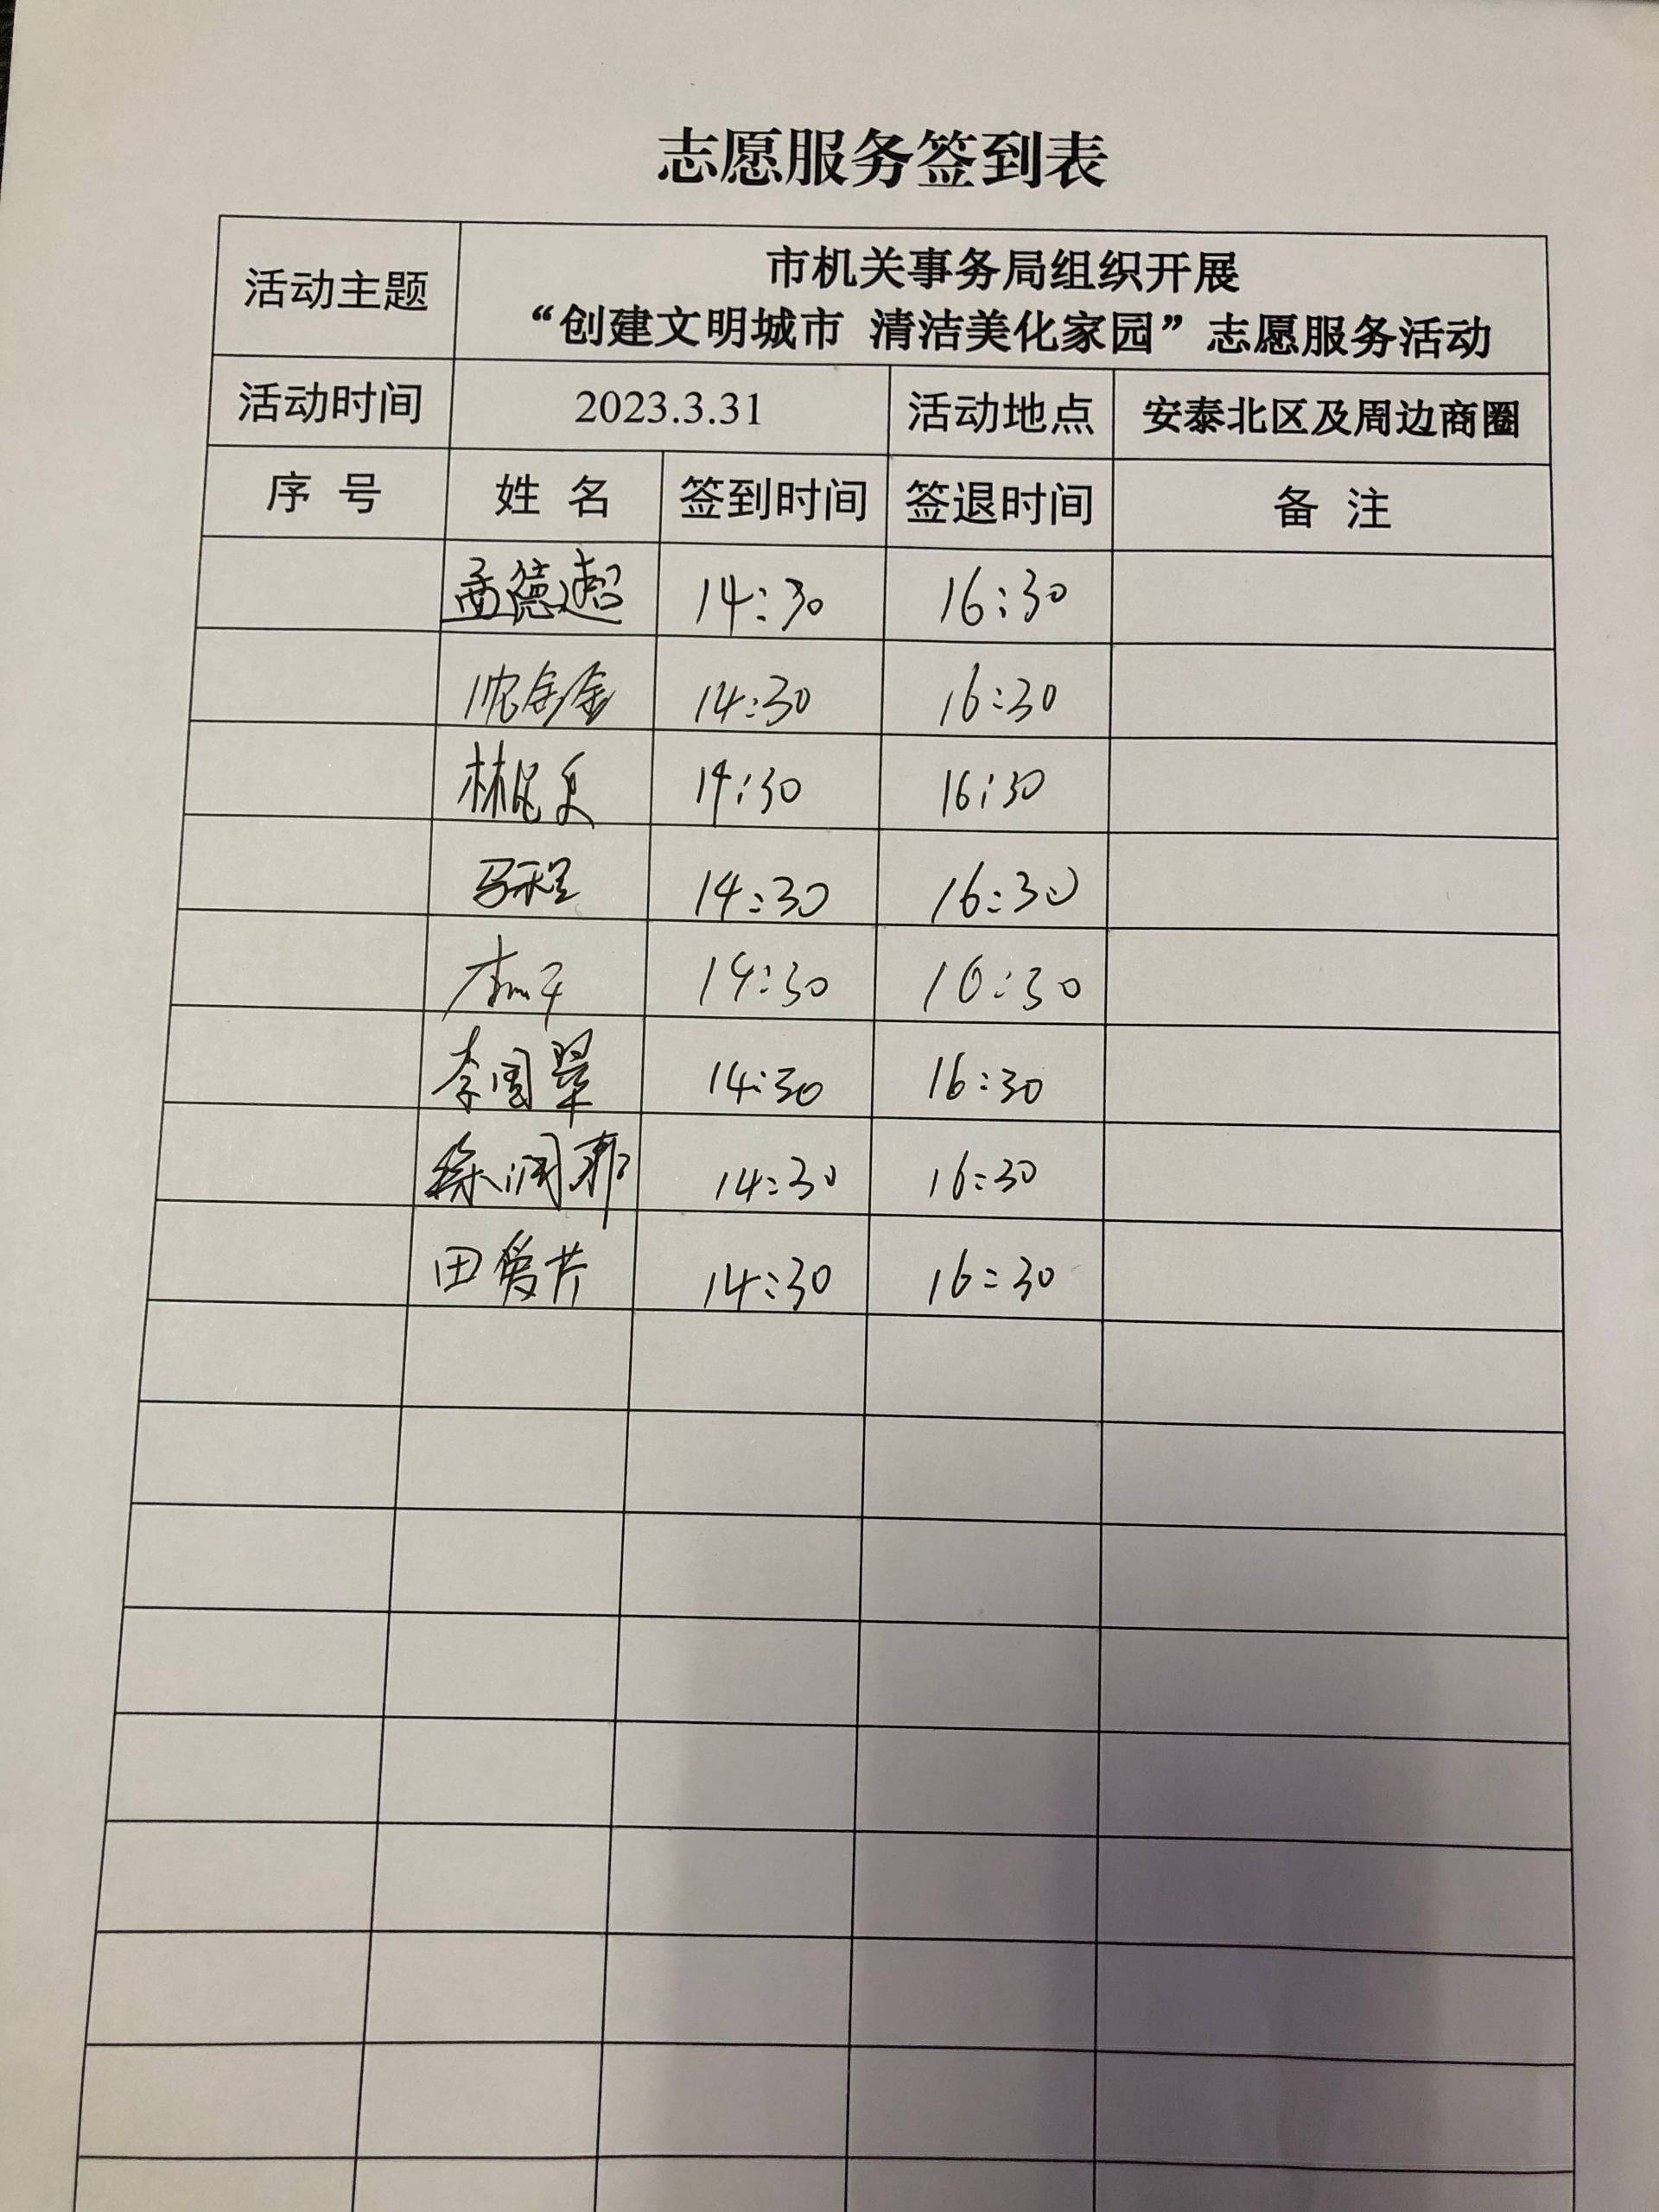 志愿服务签到表
活动主题
市机关事务局组织开展
“创建文明城市 清洁美化家园”志愿服务活动
活动时间 2023.3.31 活动地点 安泰北区及周边商圈
序 号 姓 名 签到时间 签退时间 备 注
孟德超 14:30 16:30
14:30 16:30
14:30 16:30
马程 14:30 16:30
14:30 16:30
李国翠 14:30 16:30
徐润郝 14:30 16:30
田爱芹 14:30 16:30